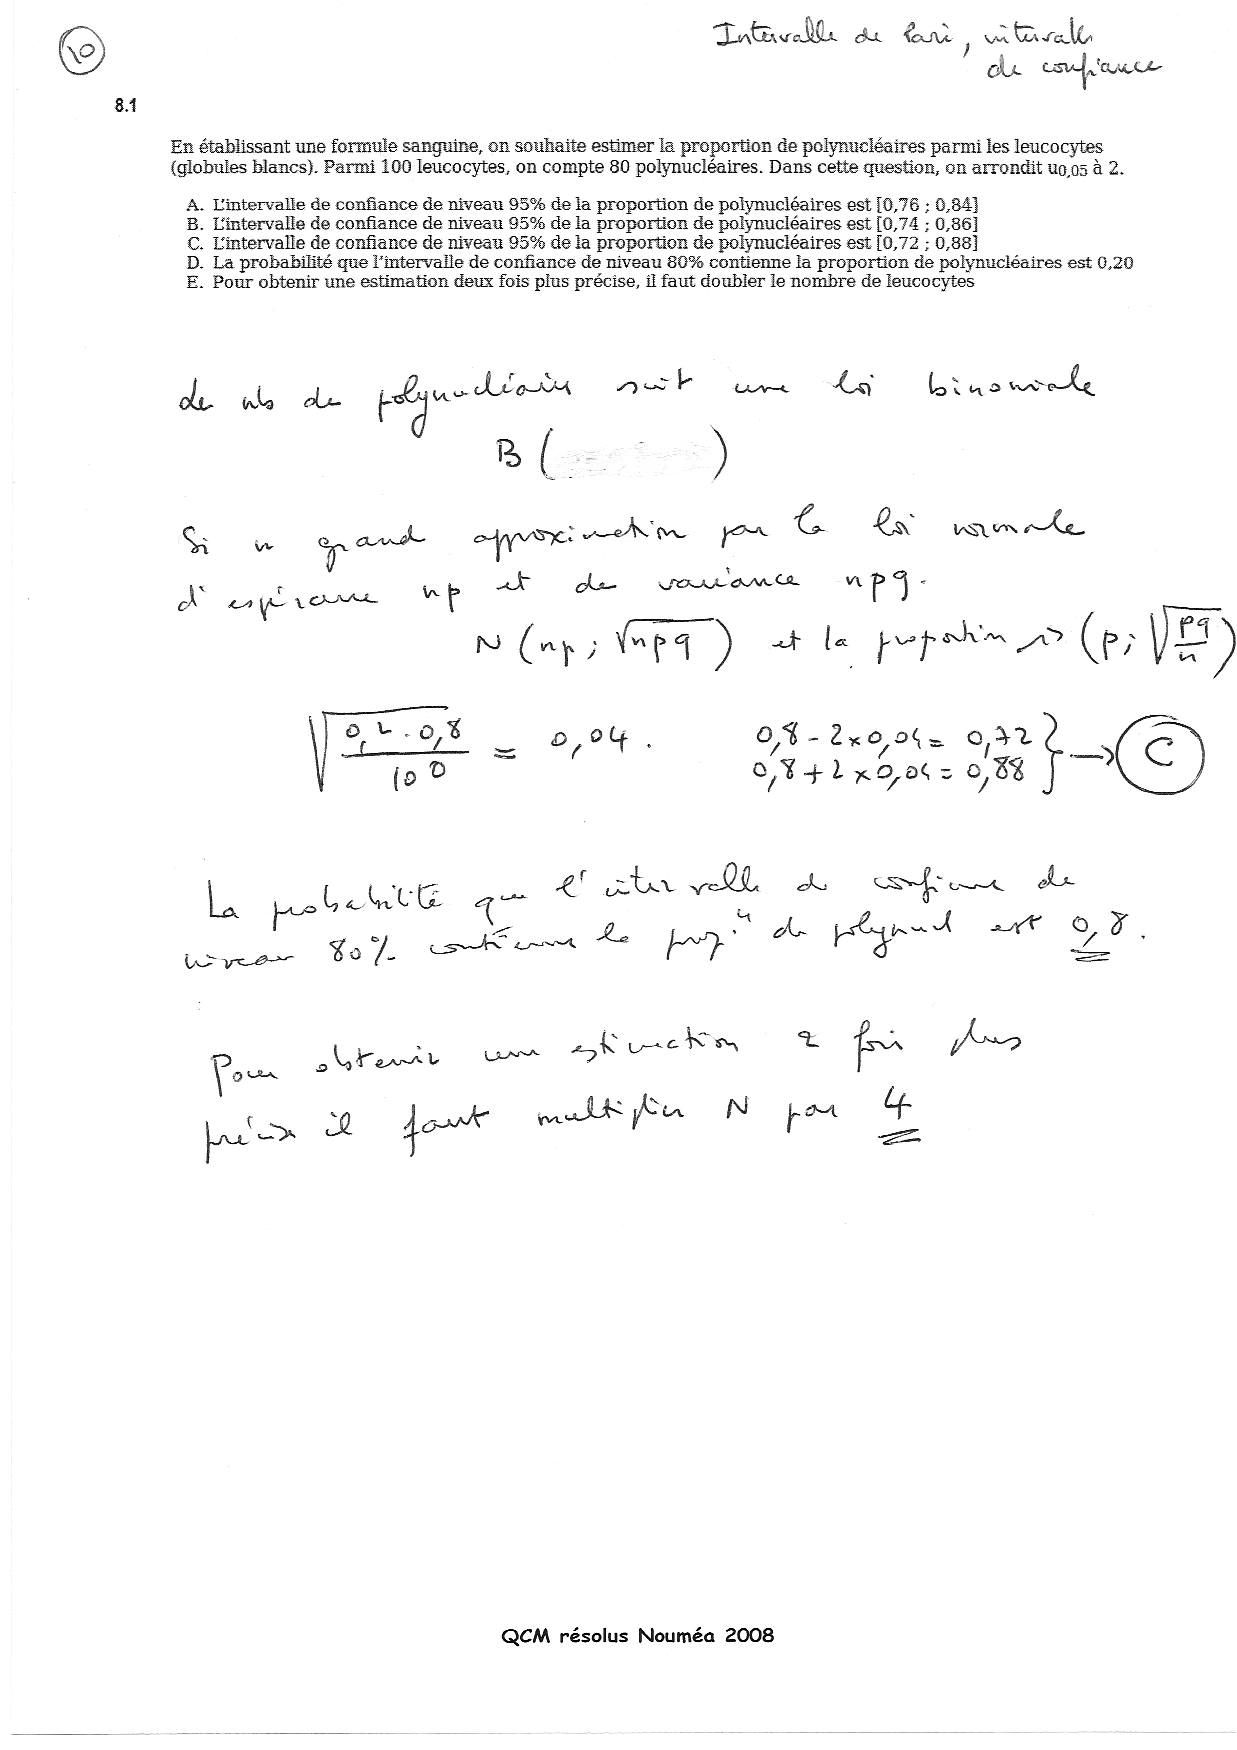 10
Intervalle de Pari, intervalle
de confiance
8.1
En établissant une formule sanguine, on souhaite estimer la proportion de polynucléaires parmi les leucocytes
(globules blancs). Parmi 100 leucocytes, on compte 80 polynucléaires. Dans cette question, on arrondit u0,05 à 2.
A. L'intervalle de confiance de niveau 95% de la proportion de polynucléaires est [0,76 ; 0,84]
B. L'intervalle de confiance de niveau 95% de la proportion de polynucléaires est [0,74 ; 0,86]
C. L'intervalle de confiance de niveau 95% de la proportion de polynucléaires est [0,72 ; 0,88]
D. La probabilité que l'intervalle de confiance de niveau 80% contienne la proportion de polynucléaires est 0,20
E. Pour obtenir une estimation deux fois plus précise, il faut doubler le nombre de leucocytes
Le nb de polynucléaires suit une loi binomiale
B ( )
Si n grand approximation par la loi normale
d'espérance np et de variance npq.
N (np ; √npq) et la proportion → (p; √pq/n)
√0,2 . 0,8/100 = 0,04. 0,8 - 2 x 0,04 = 0,72
0,8 + 2 x 0,04 = 0,88 } → C
La probabilité que l'intervalle de confiance de
niveau 80% contienne la prop.n de polynucl est 0,8.
Pour obtenir une estimation 2 fois plus
précise il faut multiplier N par 4
QCM résolus Nouméa 2008